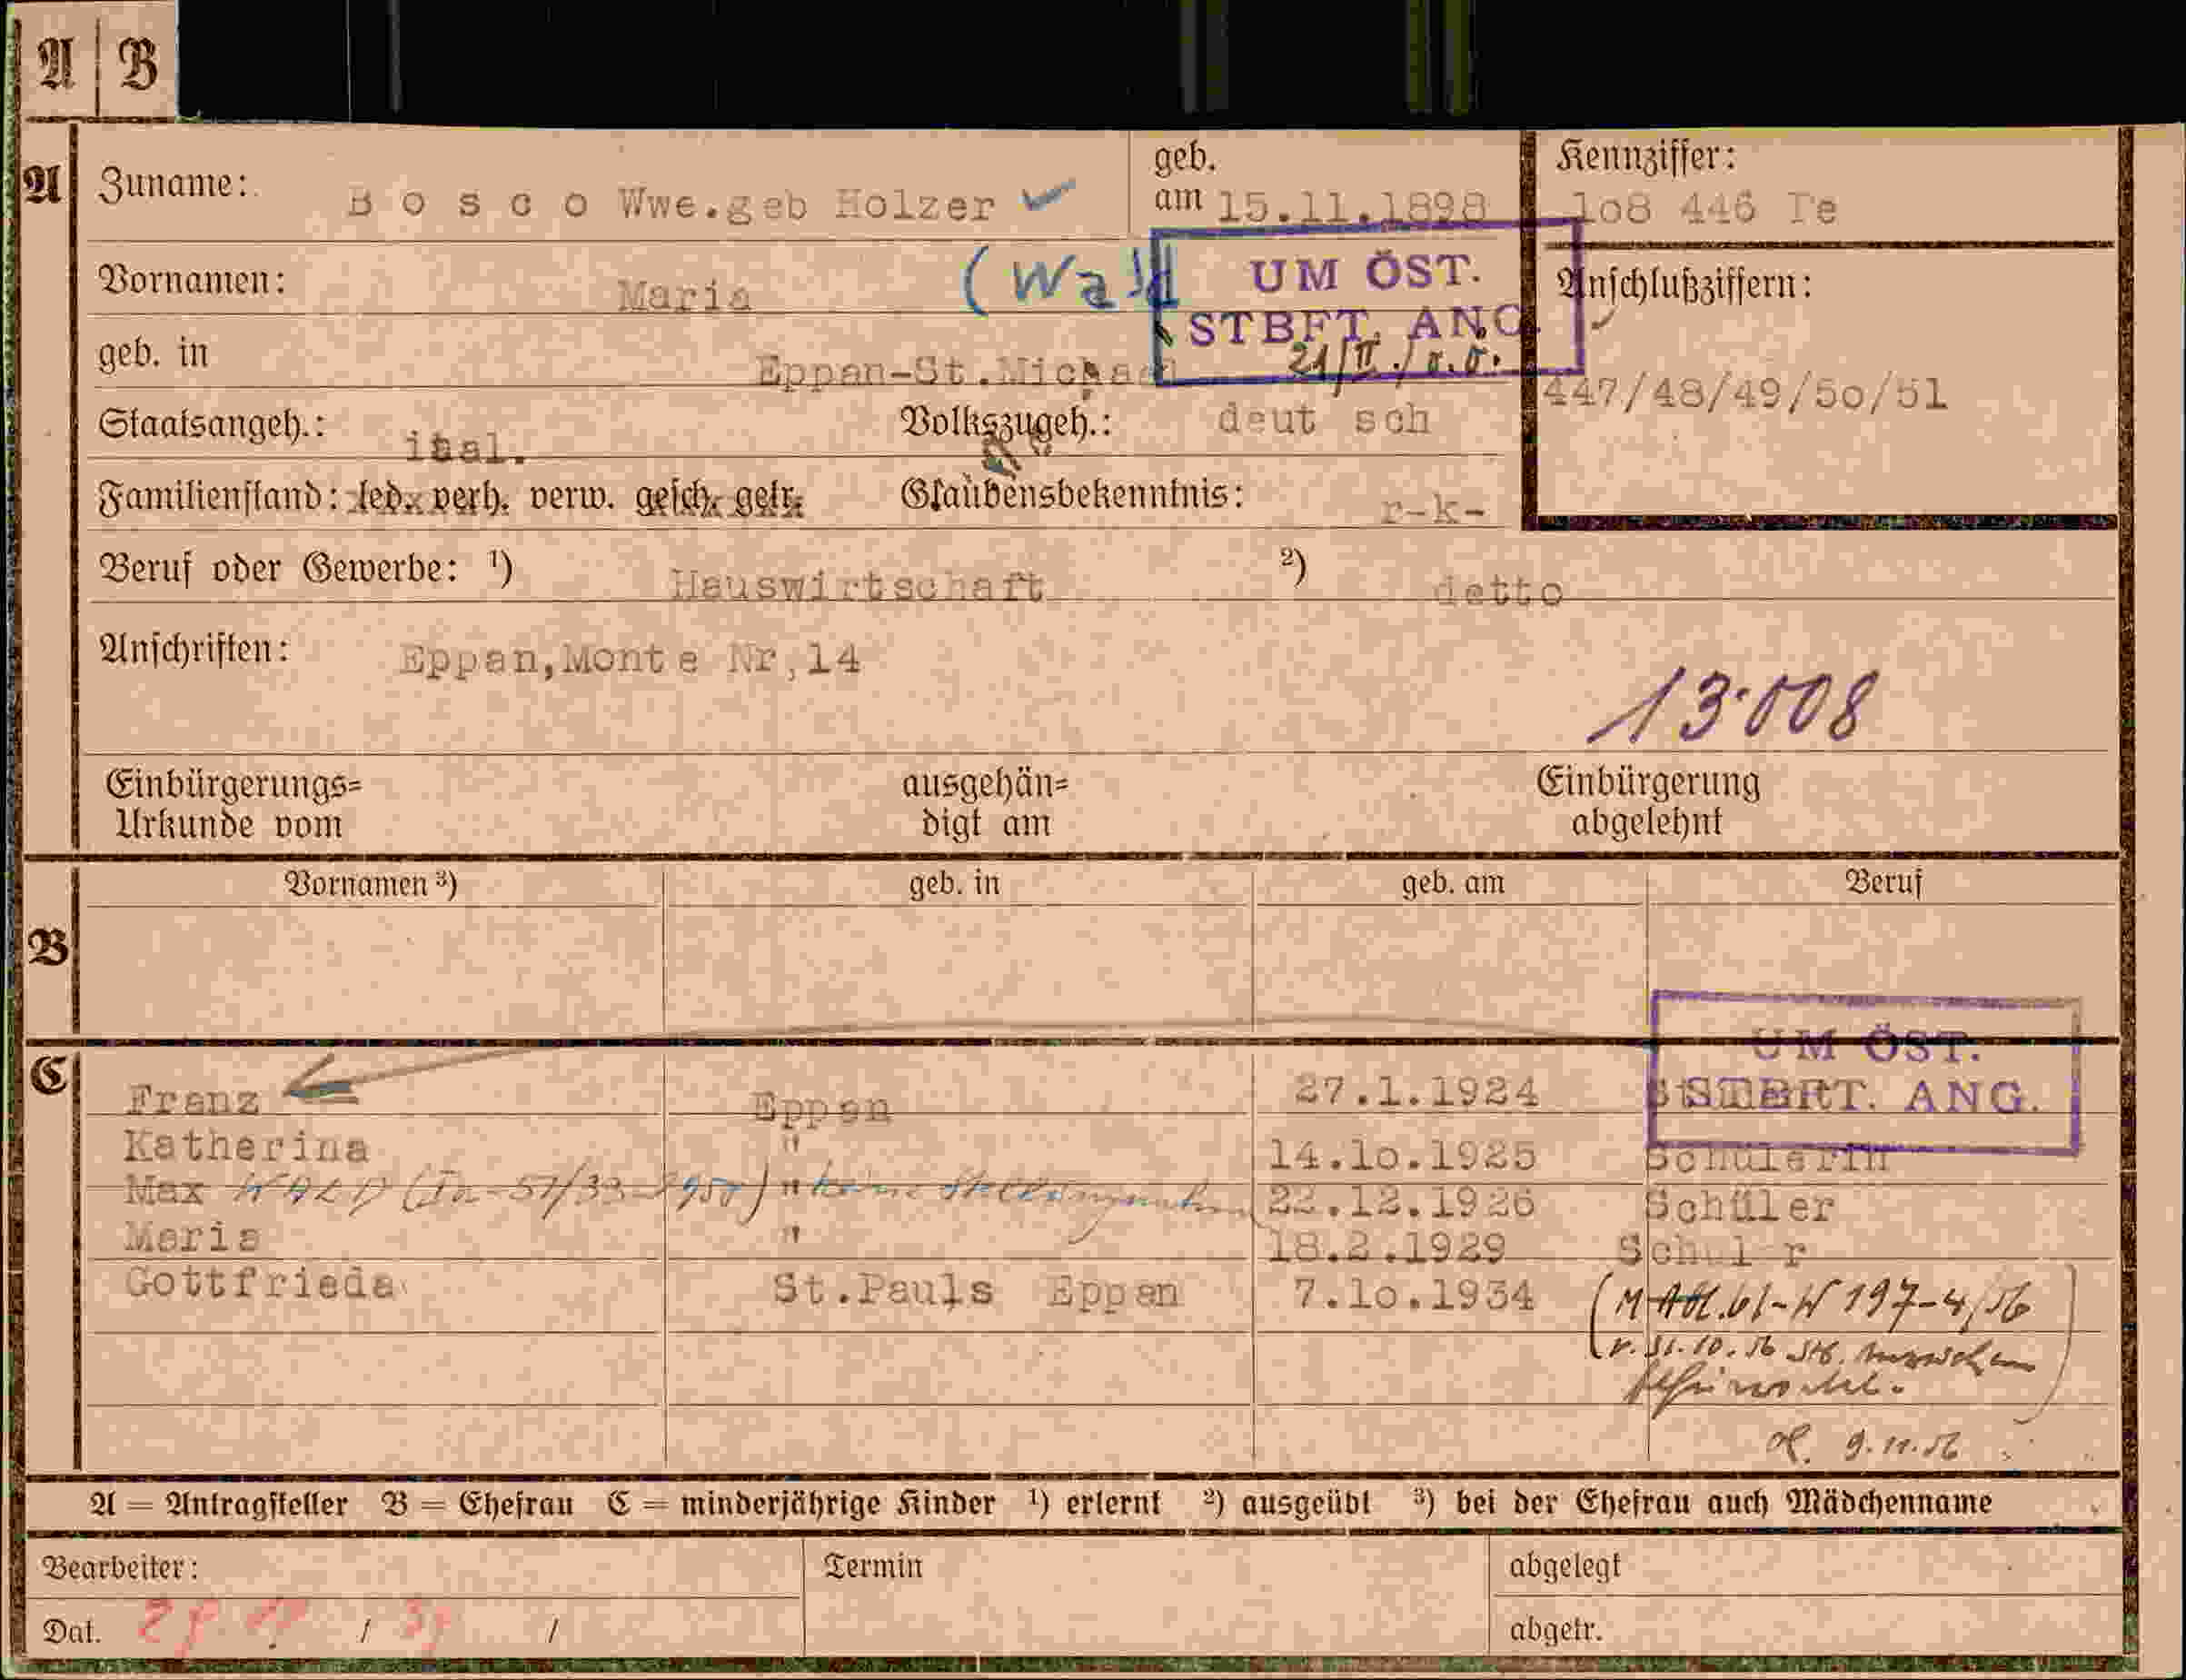 A | B
A
Zuname: B o s c o Wwe.geb Holzer
geb. am 15.11.1898
Kennziffer: 1o8 446 Te
Vornamen: Maria (Wald
UM ÖST.
STBFT. ANG.
21/II./
Anschlußziffern:
447/48/49/5o/51
geb. in Eppan-St.Michael
Staatsangeh.: ital.
Volkszugeh.: deut sch
Familienstand: led. verh. verw. gesch. getr.
Glaubensbekenntnis: r-k-
Beruf oder Gewerbe: ¹) Hauswirtschaft ²) detto
Anschriften: Eppan,Monte Nr,14
13.008
Einbürgerungs=
Urkunde vom
ausgehän=
digt am
Einbürgerung
abgelehnt
B
Vornamen ³) geb. in geb. am Beruf
C
UM ÖST.
STBFT. ANG.
Franz Eppan 27.1.1924
Katherina " 14.1o.1925 Schülerin
Max WALD " keine 22.12.1926 Schüler
Maria " 18.2.1929 Schul r
Gottfrieda St.Pauls Eppan 7.1o.1934
(M Abt. 61-W 197-4/56
v. 31.10.56
9.11.56
A = Antragsteller B = Ehefrau C = minderjährige Kinder ¹) erlernt ²) ausgeübt ³) bei der Ehefrau auch Mädchenname
Bearbeiter: Termin abgelegt
Dat. / 39 / abgetr.